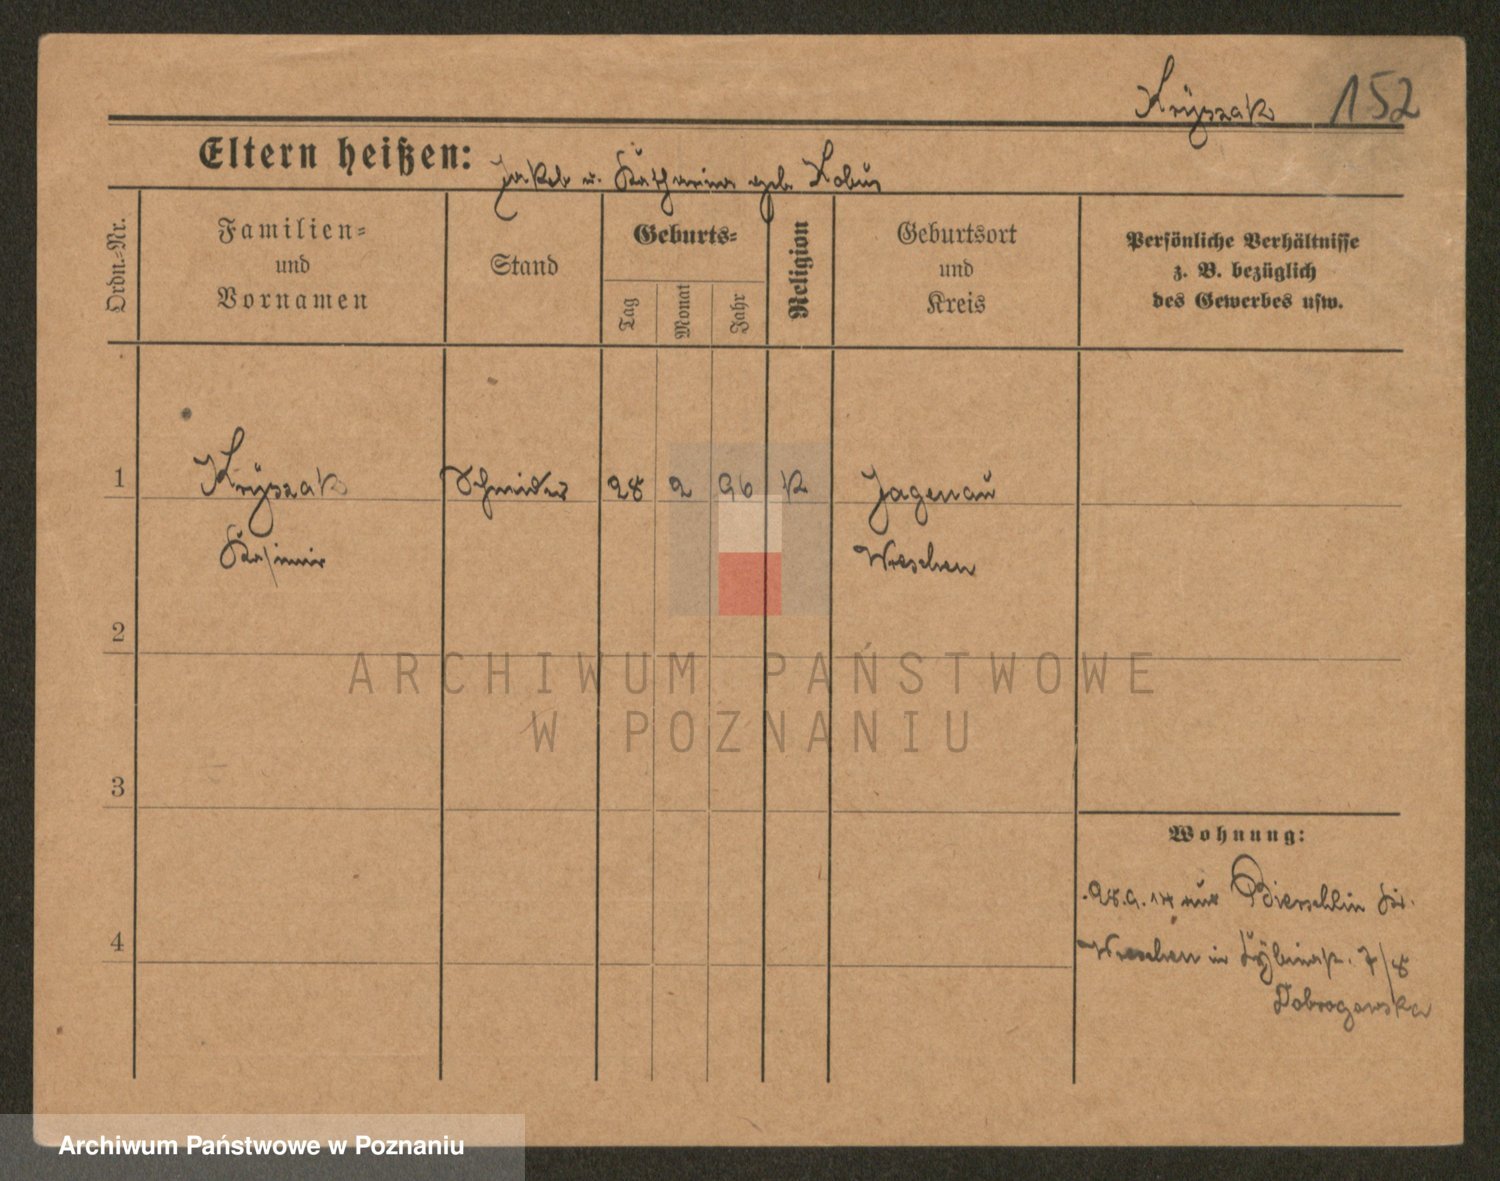 Kryszak 152
Eltern heißen: Jakob u. Katharina geb. Kobus
Ordn.-Nr.
Familien-
und
Vornamen
Stand
Geburts-
Tag
Monat
Jahr
Religion
Geburtsort
und
Kreis
Persönliche Verhältnisse
z. B. bezüglich
des Gewerbes usw.
1 Kryszak Schneider 28 2 96 K Jagenau
Kasimir Wreschen
2
3
4
Wohnung:
28.9.14 aus Bierschlin Kr.
Wreschen in 7/8
Dobrogowska
ARCHIWUM PAŃSTWOWE
W POZNANIU
Archiwum Państwowe w Poznaniu